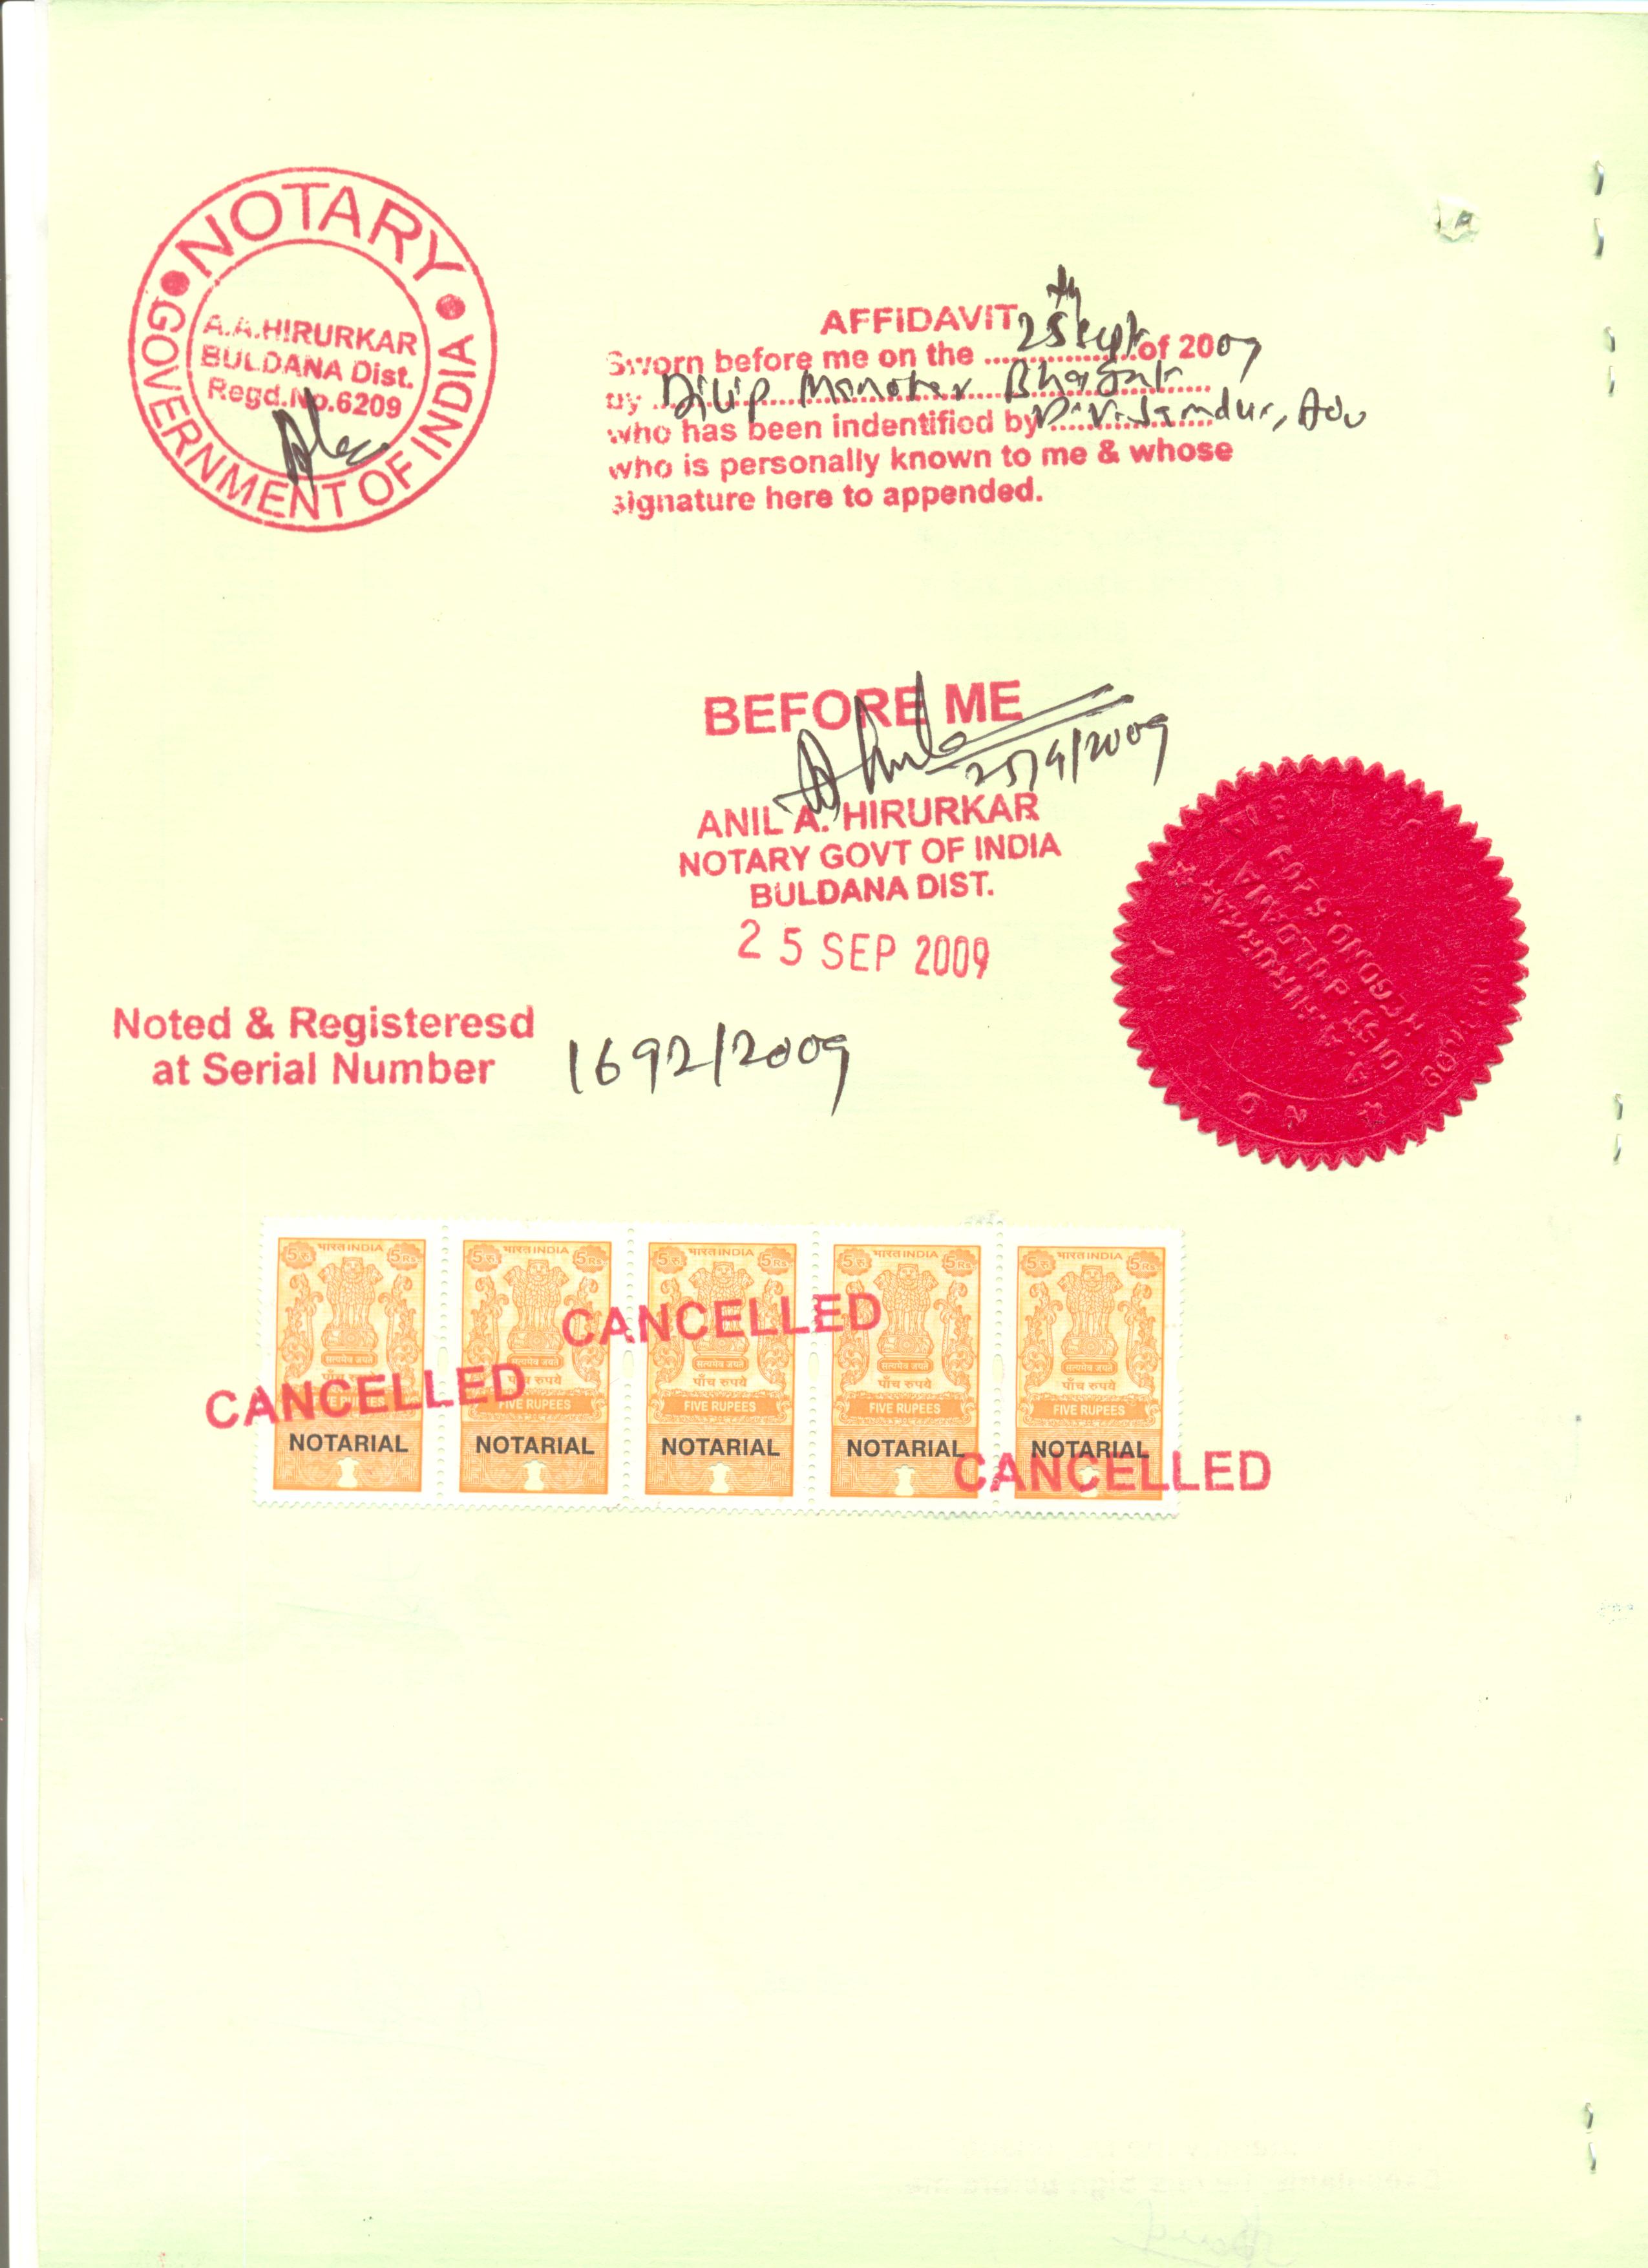 NOTARY
GOVERNMENT OF INDIA
A.A.HIRURKAR
BULDANA Dist.
Regd.No.6209
AFFIDAVIT
Sworn before me on the 25th Sept of 2009
by Dilip Manohar
who has been indentified by Adv
who is personally known to me & whose
signature here to appended.
BEFORE ME
25/9/2009
ANIL A. HIRURKAR
NOTARY GOVT OF INDIA
BULDANA DIST.
25 SEP 2009
Noted & Registeresd
at Serial Number 1692/2009
5 रु भारत INDIA 5 Rs 5 रु भारत INDIA 5 Rs 5 रु भारत INDIA 5 Rs 5 रु भारत INDIA 5 Rs 5 रु भारत INDIA 5 Rs
CANCELLED
सत्यमेव जयते सत्यमेव जयते सत्यमेव जयते सत्यमेव जयते सत्यमेव जयते
पाँच रुपये पाँच रुपये पाँच रुपये पाँच रुपये पाँच रुपये
CANCELLED
FIVE RUPEES FIVE RUPEES FIVE RUPEES FIVE RUPEES FIVE RUPEES
NOTARIAL NOTARIAL NOTARIAL NOTARIAL NOTARIAL
CANCELLED